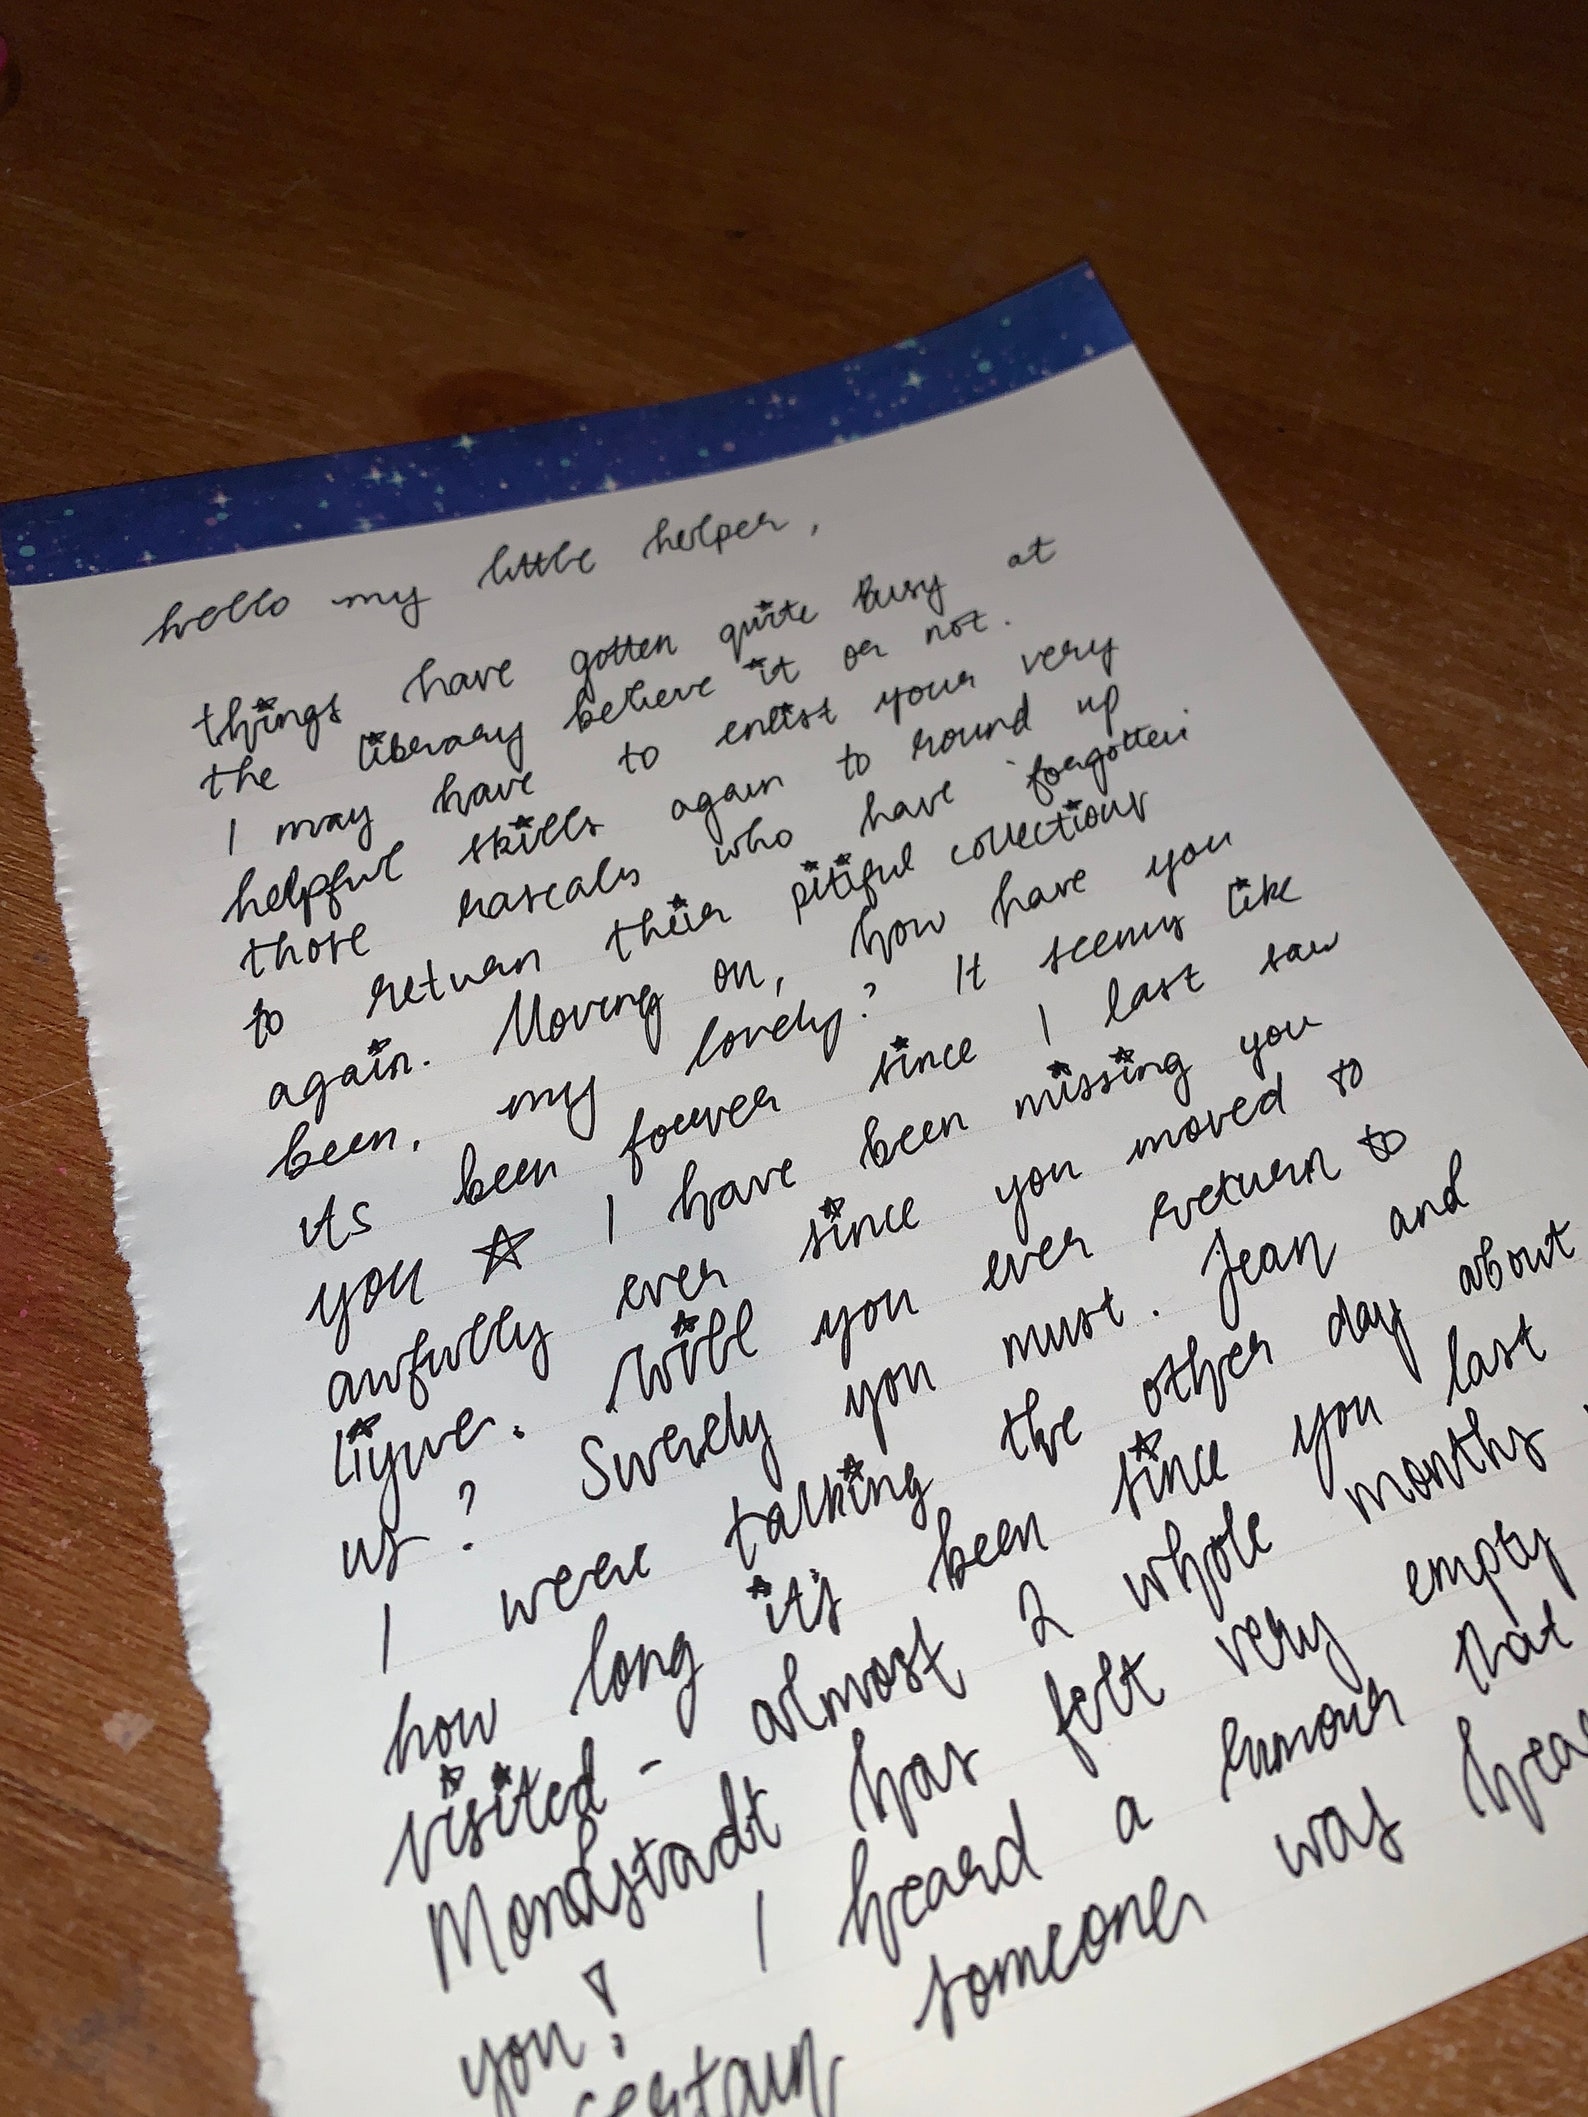 hello my little helper,
things have gotten quite busy at
the library believe it or not.
I may have to enlist your very
helpful skills again to round up
those rascals who have 'forgotten'
to return their pitiful collections
again. Moving on, how have you
been, my lovely? It seems like
its been forever since I last saw
you ☆ I have been missing you
awfully ever since you moved to
liyue. Will you ever return to
us? Surely you must. Jean and
I were talking the other day about
how long it's been since you last
visited - almost 2 whole months.
Mondstadt has felt very empty
you! I heard a rumour that
certain someone was